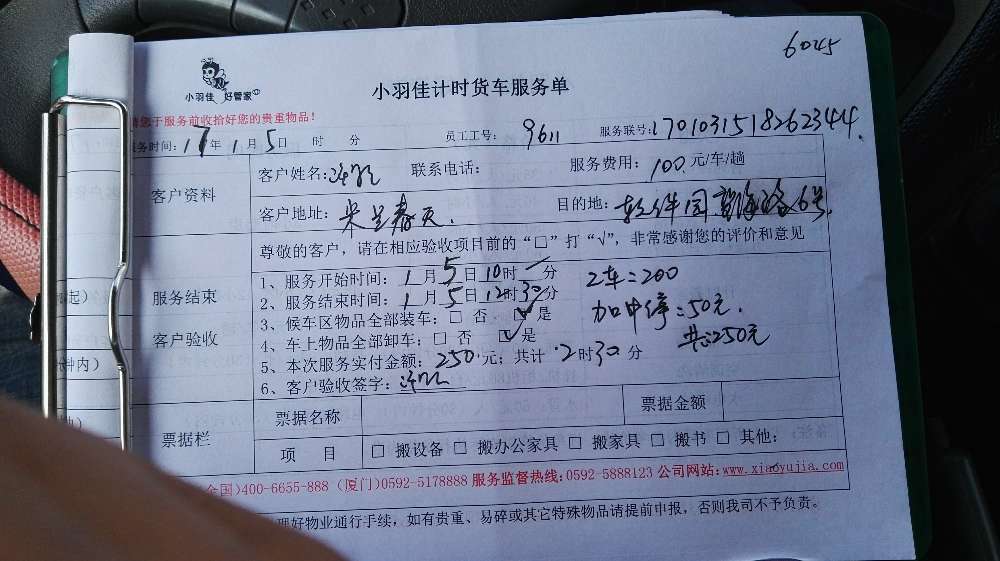 6045
小羽佳 好管家
小羽佳计时货车服务单
您于服务前收拾好您的贵重物品！
服务时间：17年1月5日 时 分 员工工号：9611 服务联号：170103151826 2344
客户资料
客户姓名： 联系电话： 服务费用：100元/车/趟
客户地址：米兰春天. 目的地：软件园望海路6号
尊敬的客户，请在相应验收项目前的“□”打“√”，非常感谢您的评价和意见
服务结束
客户验收
1、服务开始时间：1月5日10时 分
2、服务结束时间：1月5日12时30分
3、候车区物品全部装车：□ 否 ☑ 是
4、车上物品全部卸车：□ 否 ☑ 是
5、本次服务实付金额：250元；共计2时30分
6、客户验收签字：
2车=200
加中停=50元.
共:250元
起）
钟内）
票据栏
票据名称 票据金额
项 目 □ 搬设备 □ 搬办公家具 □ 搬家具 □ 搬书 □ 其他：
全国)400-6655-888 (厦门)0592-5178888 服务监督热线:0592-5888123 公司网站:www.xiaoyujia.com
理好物业通行手续，如有贵重、易碎或其它特殊物品请提前申报，否则我司不予负责。